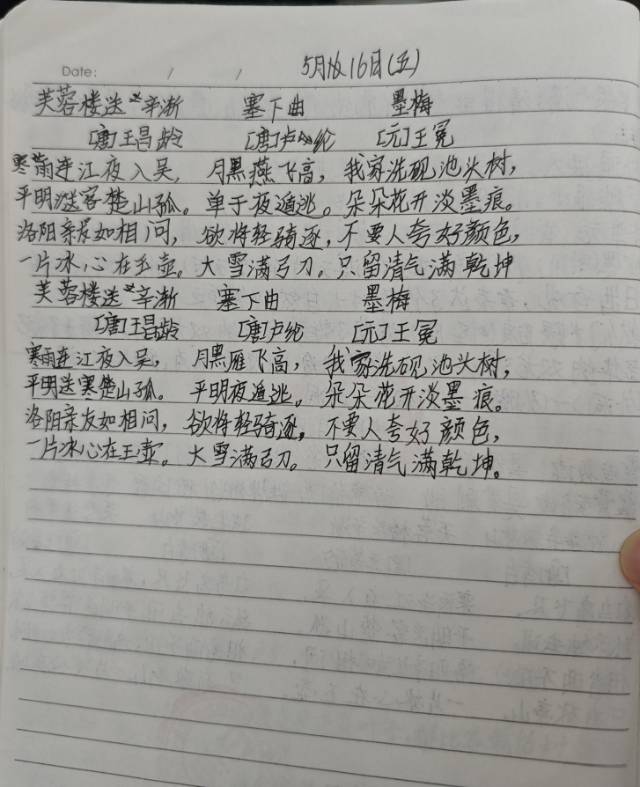 Date: / /
5月16日(五)
芙蓉楼送辛渐 塞下曲 墨梅
[唐]王昌龄 [唐]卢纶 [元]王冕
寒雨连江夜入吴, 月黑燕飞高, 我家洗砚池头树,
平明送客楚山孤。单于夜遁逃。朵朵花开淡墨痕。
洛阳亲友如相问, 欲将轻骑逐, 不要人夸好颜色,
一片冰心在玉壶。大雪满弓刀。只留清气满乾坤
芙蓉楼送辛渐 塞下曲 墨梅
[唐]王昌龄 [唐]卢纶 [元]王冕
寒雨连江夜入吴, 月黑雁飞高, 我家洗砚池头树,
平明送寒楚山孤。平明夜遁逃。朵朵花开淡墨痕。
洛阳亲友如相问, 欲将轻骑逐, 不要人夸好颜色,
一片冰心在玉壶。大雪满弓刀。只留清气满乾坤。